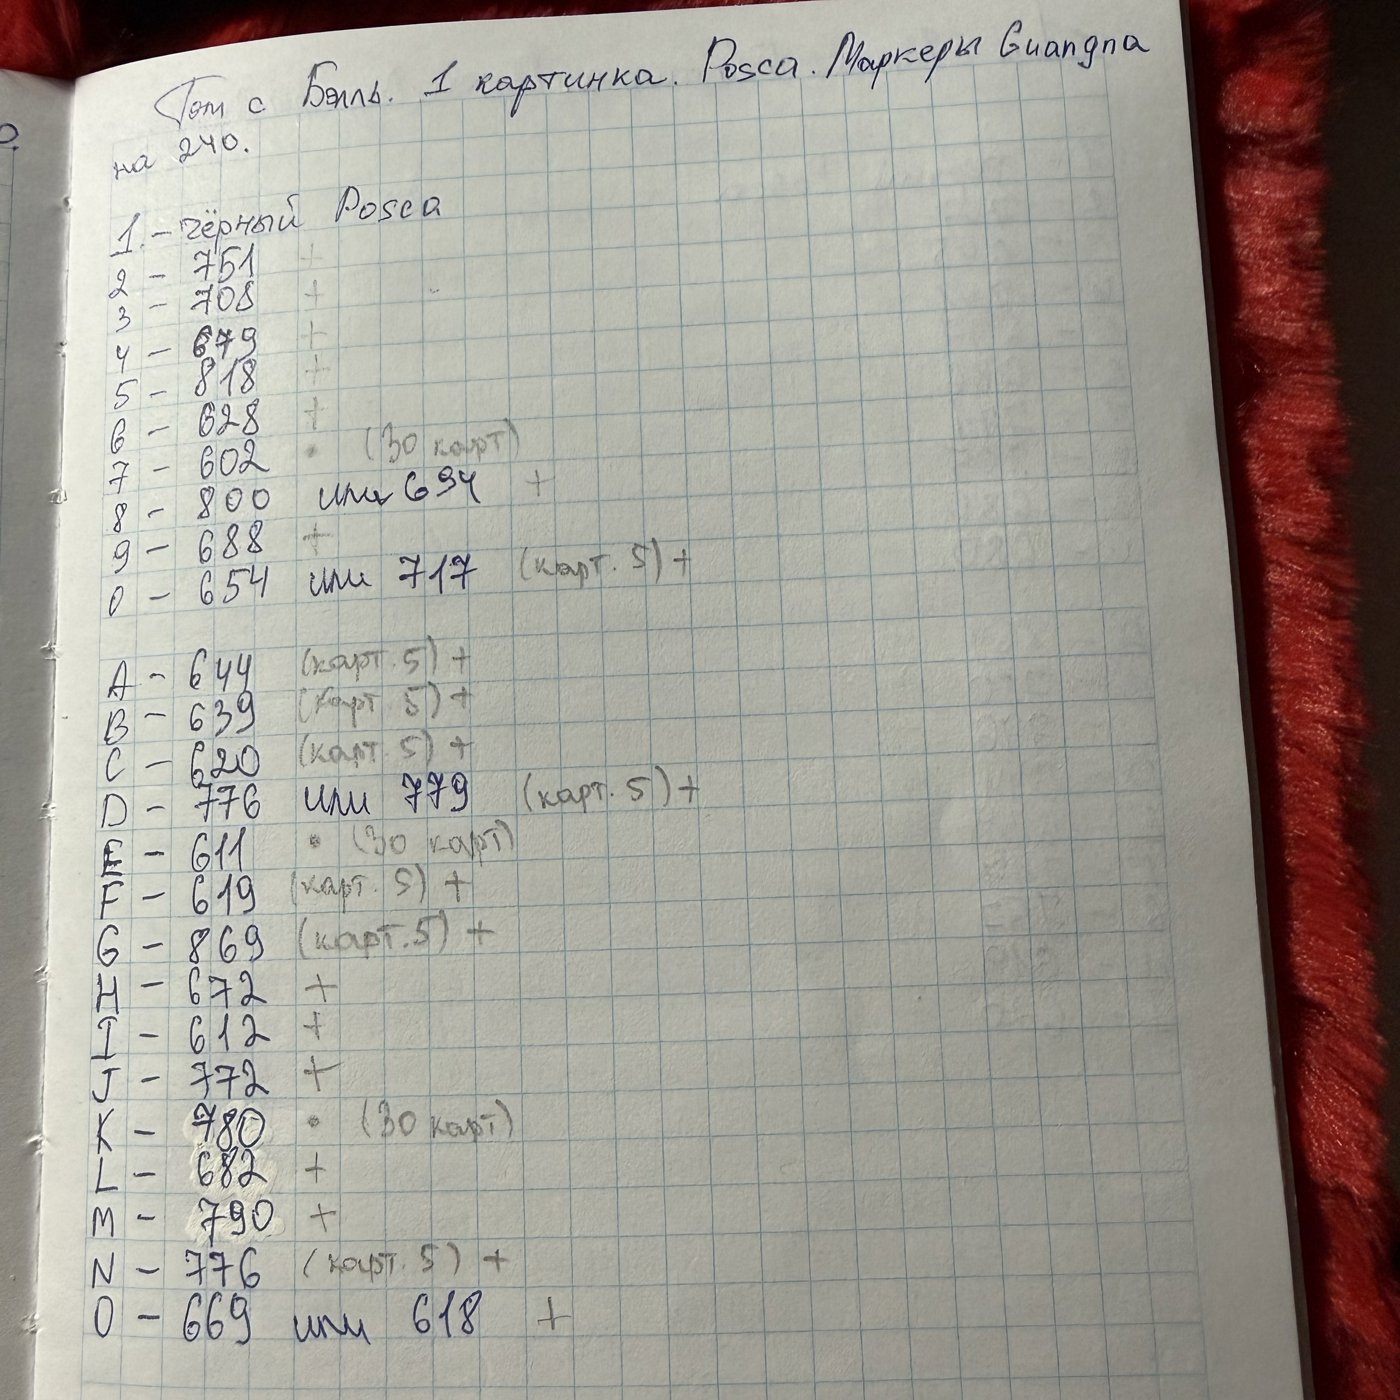 Том с Бэлль. 1 картинка. Posca. Маркеры Guangna
на 240.
1. - чёрный Posca
2 - 751 +
3 - 708 +
4 - 679 +
5 - 818 +
6 - 628 +
7 - 602 • (30 карт)
8 - 800 или 694 +
9 - 688 +
0 - 654 или 717 (карт. 5) +
A - 644 (карт. 5) +
B - 639 (карт 5) +
C - 620 (карт. 5) +
D - 776 или 779 (карт. 5) +
E - 611 • (30 карт)
F - 619 (карт. 5) +
G - 869 (карт. 5) +
H - 672 +
I - 612 +
J - 772 +
K - 780 • (30 карт)
L - 682 +
M - 790 +
N - 776 (карт. 5) +
O - 669 или 618 +